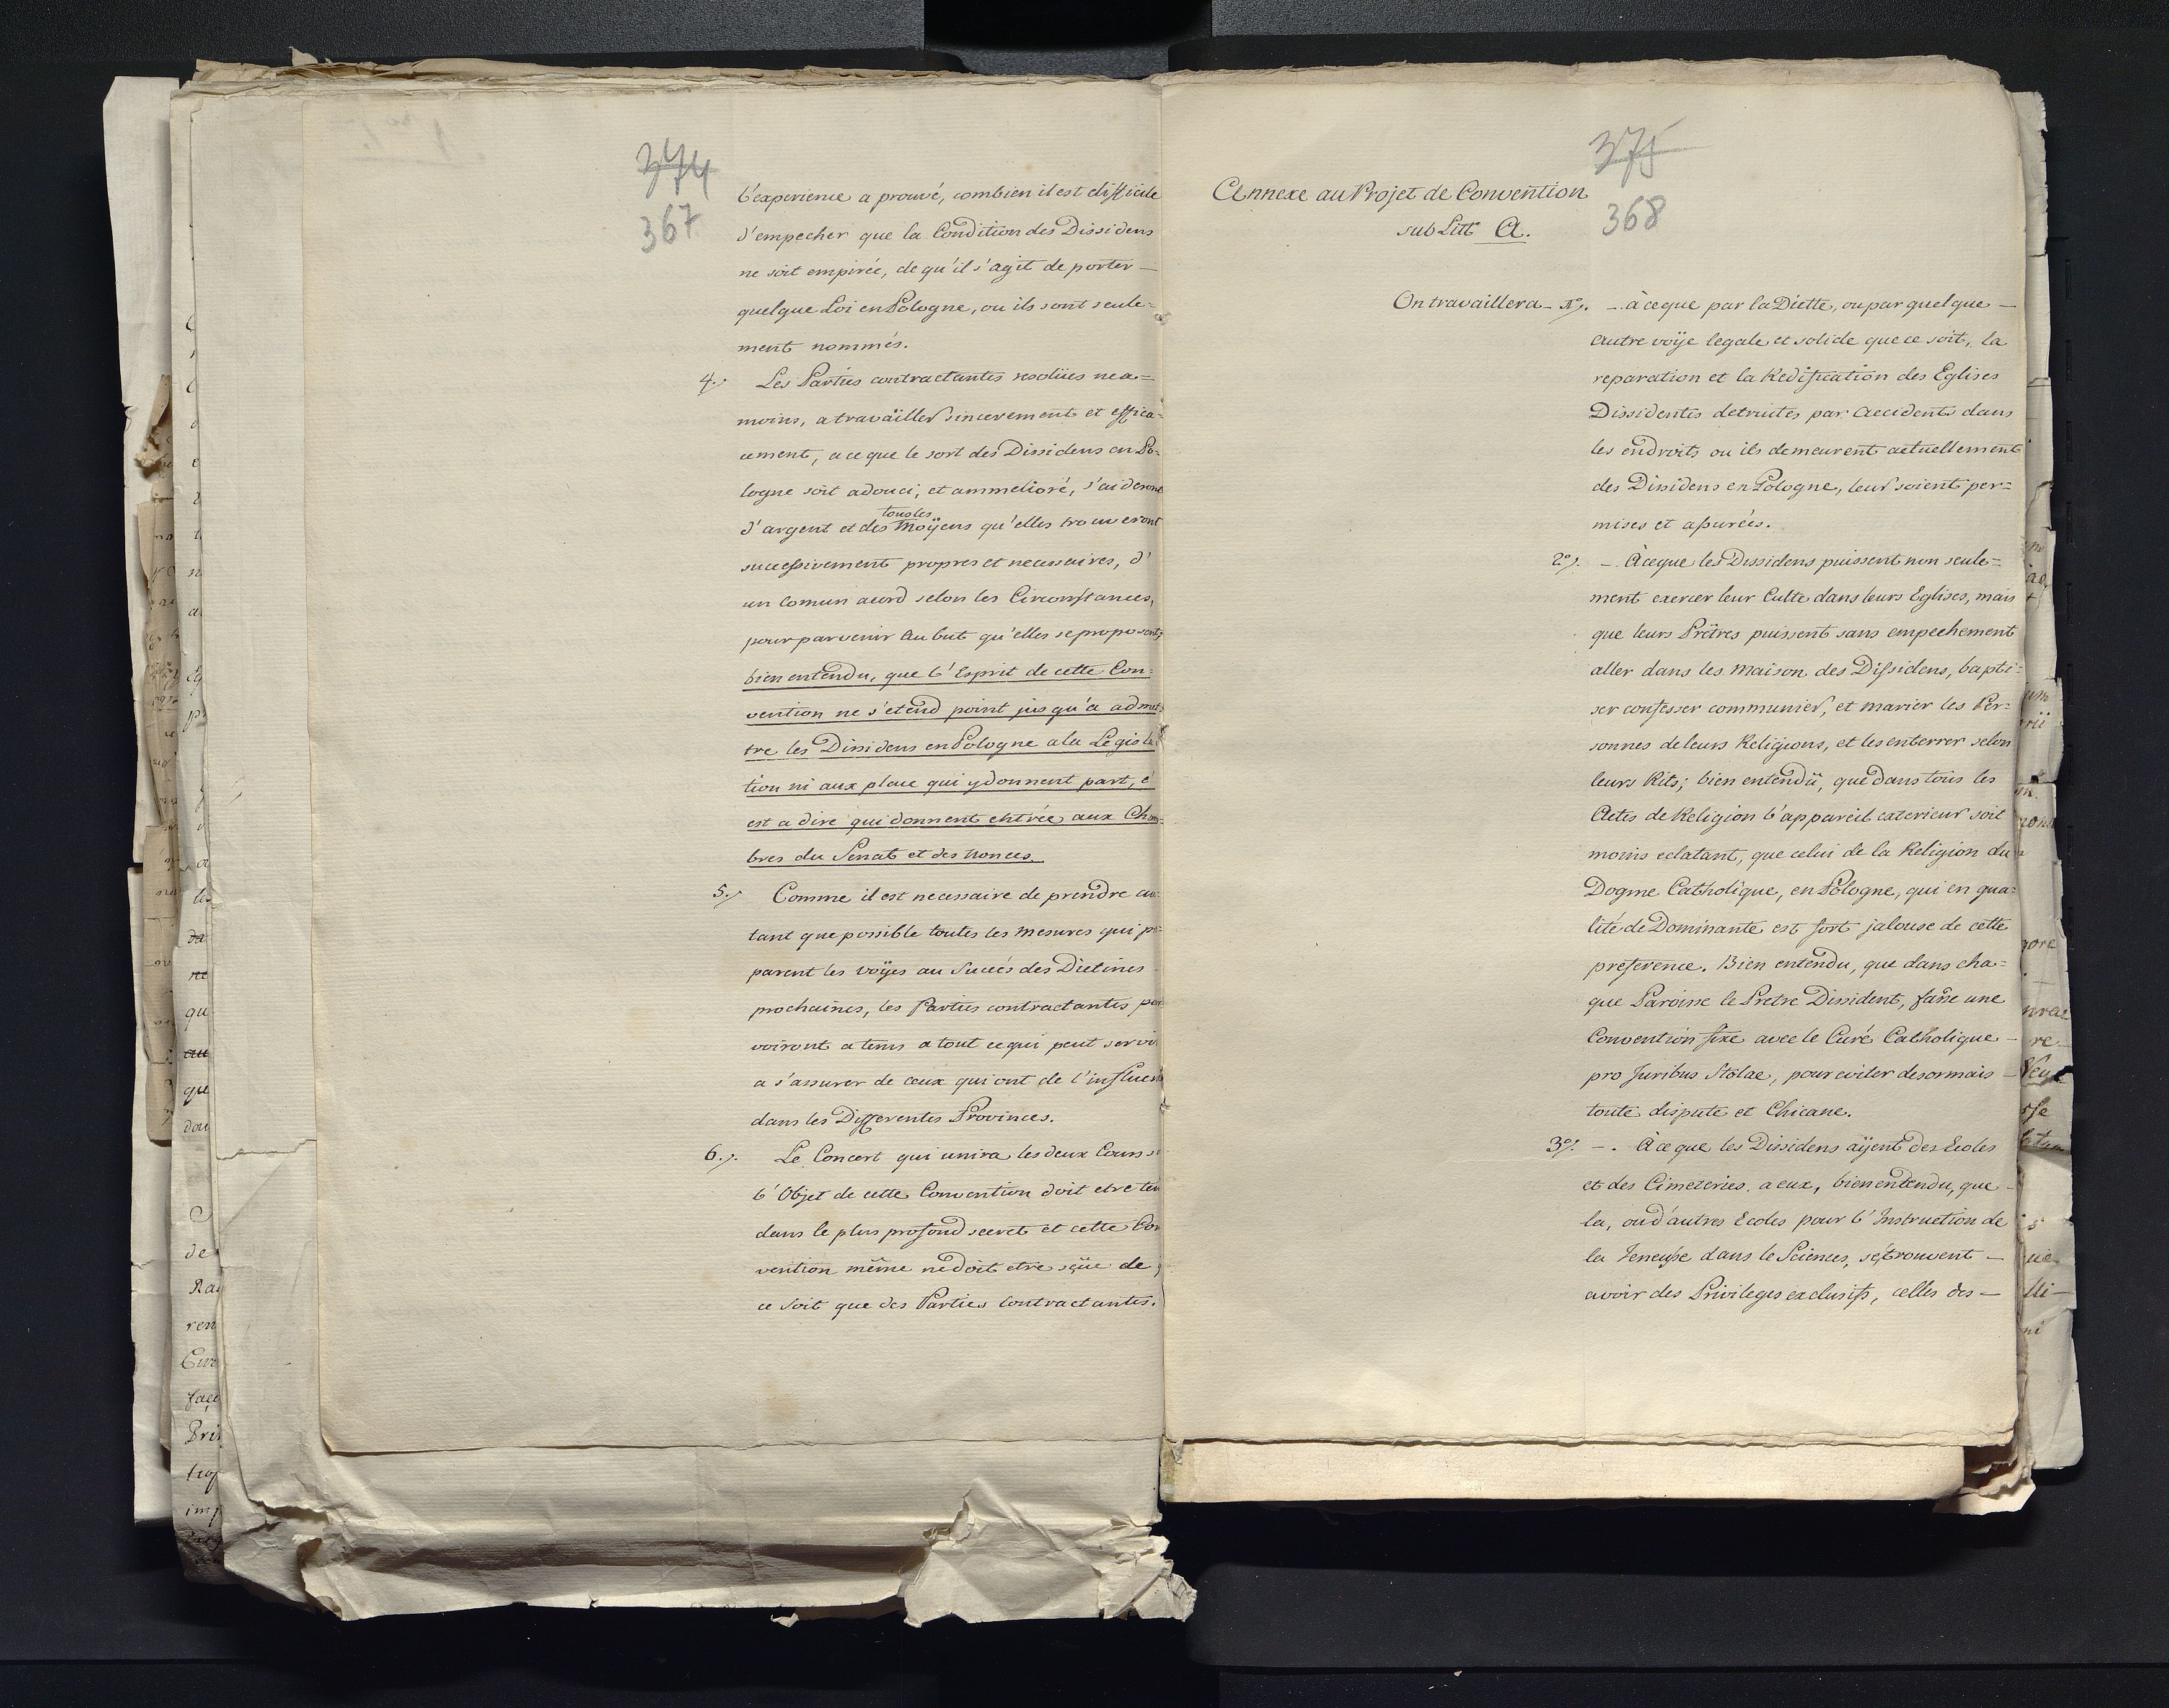 374
367
l'experience a prouvé, combien il est difficile
d'empecher que la Condition des Dissidens
ne soit empirée, de qu'il s'agit de porter —
quelque Loi en Pologne, ou ils sont seule=
ment nommés.
4.) Les Parties contractantes resolües nea=
moins, a traväiller sincerement et effica=
cement, a ce que le sort des Dissidens en Po=
logne soit adouci, et ammelioré, s'aideront
tous les
d'argent et des Moÿens qu'elles trouveront
successivement propres et necessaires, d'
un Comun acord selon les Circonstances,
pour parvenir au but qu'elles se proposent;
bien entendu, que l'Esprit de cette Con=
vention ne s'etend point jusqu'a admet
tre les Dissidens en Pologne a la Legisla
tion ni aux place qui y donnent part, c'
est a dire qui donnent entrée aux Cham=
bres du Senat et des Nonces.
5.) Comme il est necessaire de prendre au=
tant que possible toutes les Mesures qui pre=
parent les voÿes au Succés des Dietines
prochaines, les Parties contractantes pour
voiront a tems a tout ce qui peut servir
a s'assurer de ceux qui ont de l'influence
dans les Differentes Provinces.
6.). Le Concert qui unira les deux Cours s
l'Objet de cette Convention doit etre ten
dans le plus profond secret et cette Con
vention même ne doit etre sçüe de
ce soit que des Parties Contractantes.
375
368
Annexe au Projet de Convention
sub Litt A.
On travaillera – 1º). —. à ce que par la Diette, ou par quelque —
autre voÿe legale et solide que ce soit, la
reparation et la Redification des Eglises
Dissidentes detruites par Accident dans
les endroits ou ils demeurent actuellement
des Dissidens en Pologne, leur soient per=
mises et assurées.
2º). —. À ce que les Dissidens puissent non seule=
ment exercer leur Culte dans leurs Eglises, mais
que leurs Prêtres puissent sans empechement
aller dans les Maison des Dissidens, bapti=
ser confesser communier, et marier les Per=
sonnes de leurs Religions, et les enterrer selon
leurs Rits; bien entendü, que dans tous les
Actes de Religion l'appareil exterieur soit
moins eclatant, que celui de la Religion du
Dogme Catholique, en Pologne, qui en qua=
lité de Dominante est fort jalouse de cette
preference. Bien entendu, que dans cha=
que Paroisse le Pretre Dissident, fasse une
Convention fixe avec le Curé Catholique —
pro Juribus Stolae, pour eviter desormais —
toute dispute et Chicane.
3º). —. À ce que les Dissidens aÿent des Ecoles
et des Cimeteries. a eux, bien entendu, que —
la, ou d'autres Ecoles pour l'Instruction de
la Jeneusse dans le Sciences, se trouvent —
avoir des Privileges exclusifs, celles des —